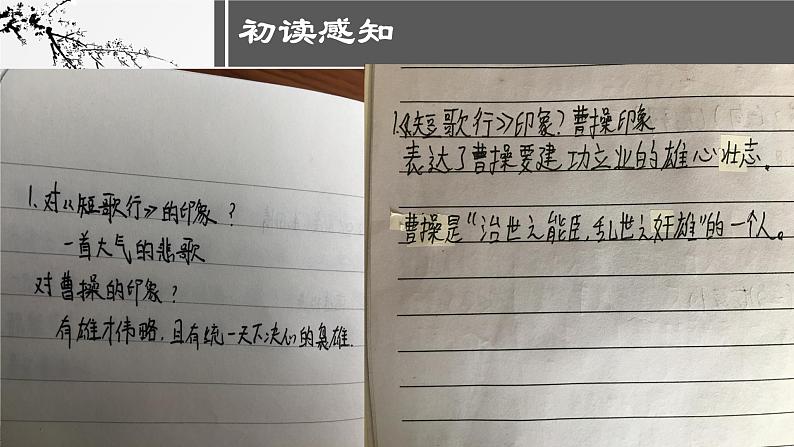 初读感知
1. 对《短歌行》的印象?
一首大气的悲歌
对曹操的印象?
有雄才伟略,且有统一天下决心的枭雄.
1.《短歌行》印象?曹操印象
表达了曹操要建功立业的雄心壮志。
曹操是“治世之能臣,乱世之奸雄”的一个人。